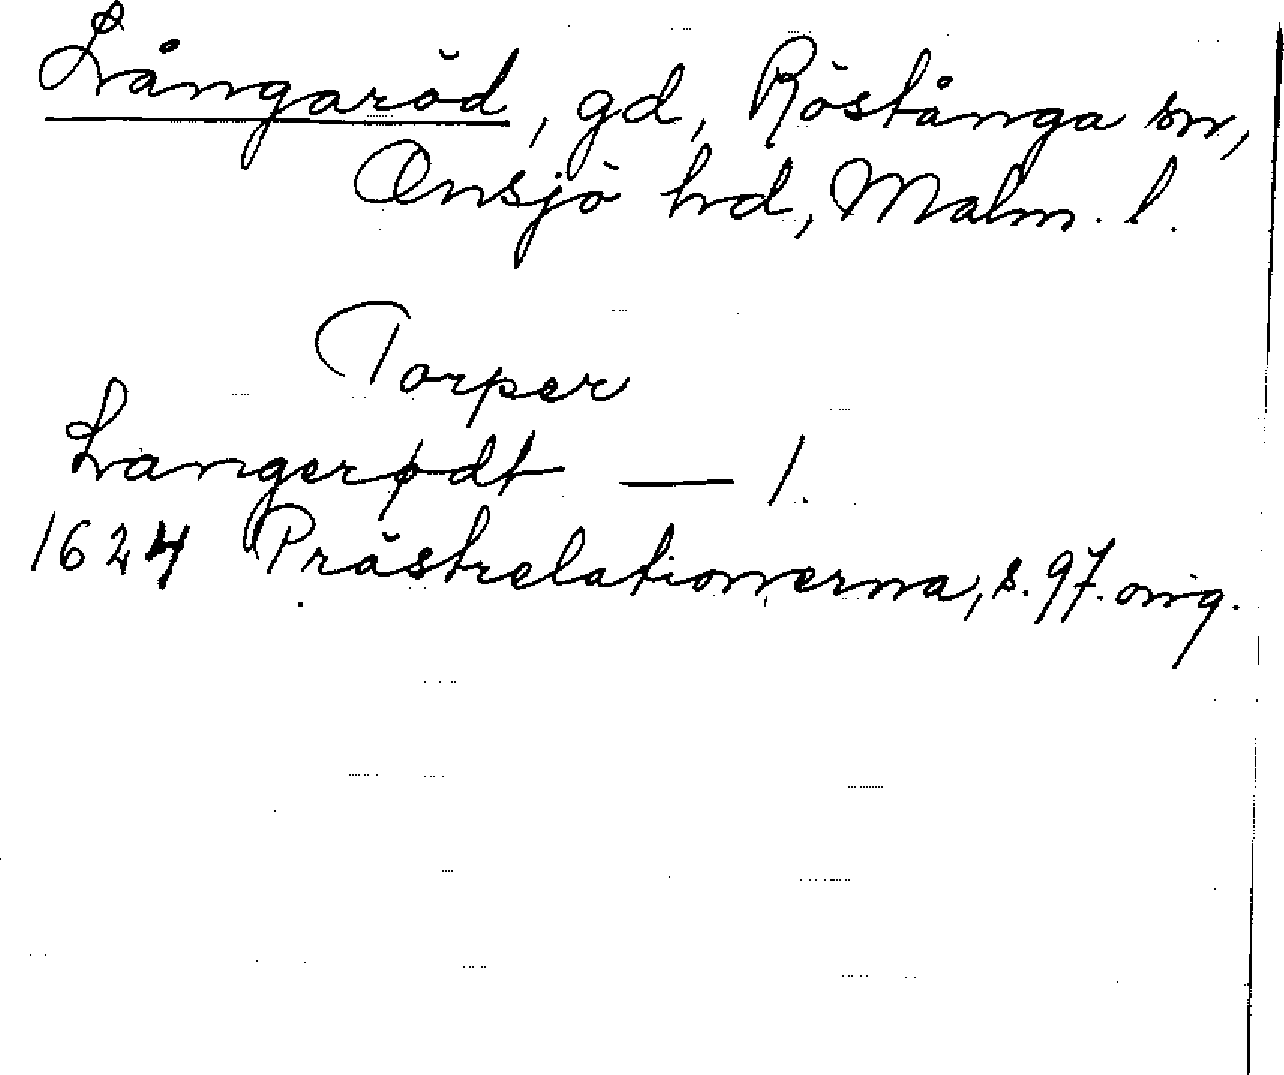 Långaröd, gd, Röstånga sn,
Onsjö hd, Malm. l.
Torper
Langerødt — 1.
1624 Prästrelationerna, s. 97. orig.